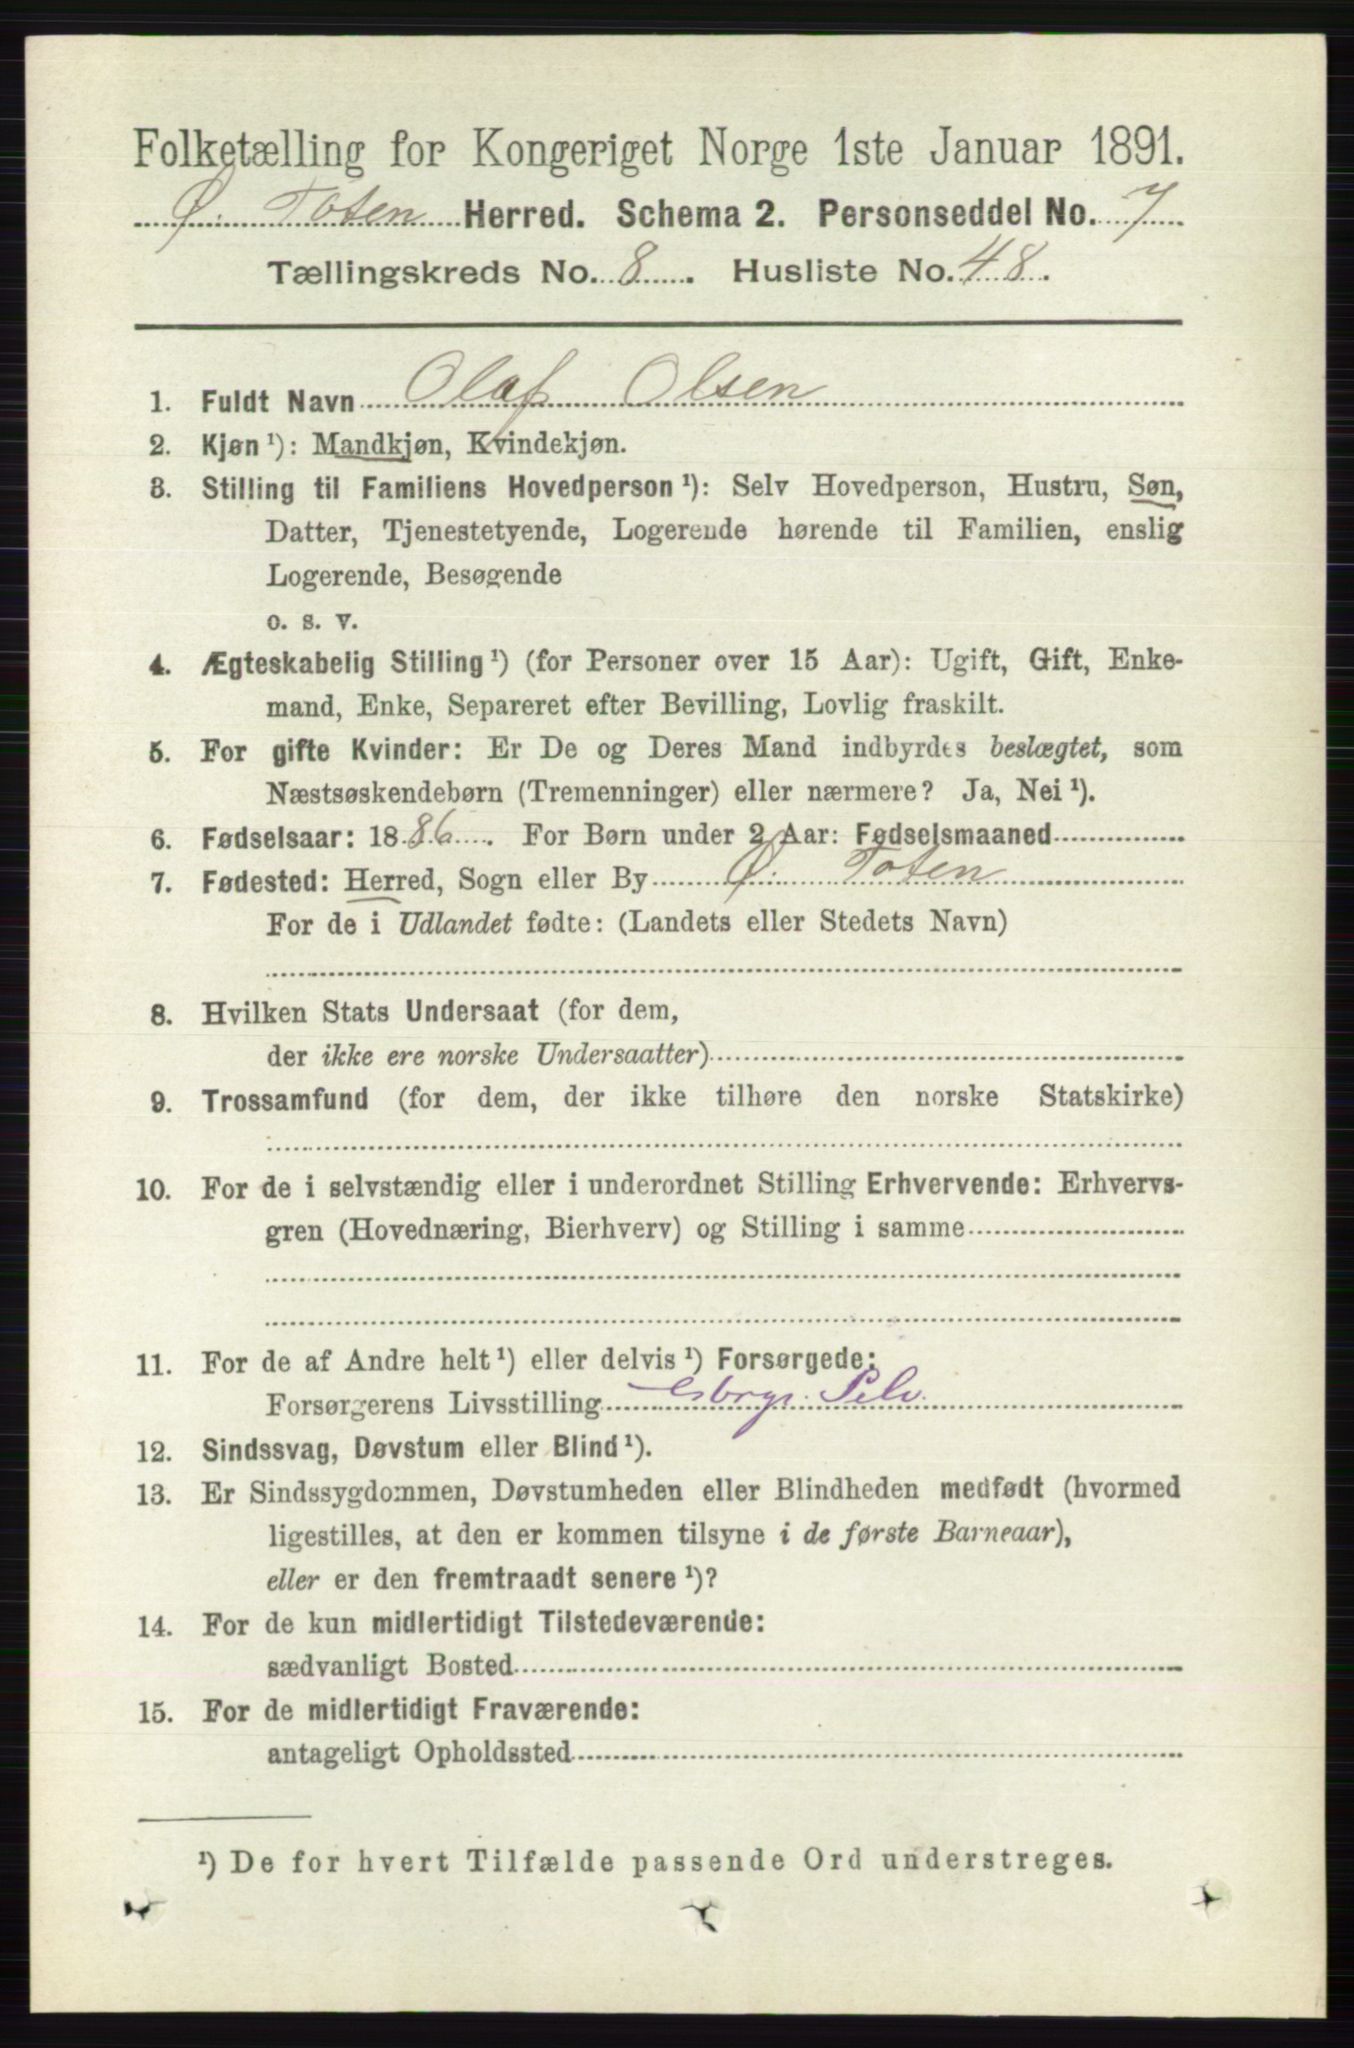 Folketælling for Kongeriget Norge 1ste Januar 1891.
Ø. Toten Herred. Schema 2. Personseddel No. 7
Tællingskreds No. 8. Husliste No. 48.
1. Fuldt Navn Olaf Olsen
2. Kjøn ¹): Mandkjøn, Kvindekjøn.
3. Stilling til Familiens Hovedperson ¹): Selv Hovedperson, Hustru, Søn,
Datter, Tjenestetyende, Logerende hørende til Familien, enslig
Logerende, Besøgende
o. s. v.
4. Ægteskabelig Stilling ¹) (for Personer over 15 Aar): Ugift, Gift, Enke-
mand, Enke, Separeret efter Bevilling, Lovlig fraskilt.
5. For gifte Kvinder: Er De og Deres Mand indbyrdes beslægtet, som
Næstsøskendebørn (Tremenninger) eller nærmere? Ja, Nei ¹).
6. Fødselsaar: 1886. For Børn under 2 Aar: Fødselsmaaned
7. Fødested: Herred, Sogn eller By Ø. Toten
For de i Udlandet fødte: (Landets eller Stedets Navn)
8. Hvilken Stats Undersaat (for dem,
der ikke ere norske Undersaatter)
9. Trossamfund (for dem, der ikke tilhøre den norske Statskirke)
10. For de i selvstændig eller i underordnet Stilling Erhvervende: Erhvervs-
gren (Hovednæring, Bierhverv) og Stilling i samme
11. For de af Andre helt ¹) eller delvis ¹) Forsørgede:
Forsørgerens Livsstilling Gbrgr. Selv.
12. Sindssvag, Døvstum eller Blind ¹).
13. Er Sindssygdommen, Døvstumheden eller Blindheden medfødt (hvormed
ligestilles, at den er kommen tilsyne i de første Barneaar),
eller er den fremtraadt senere ¹)?
14. For de kun midlertidigt Tilstedeværende:
sædvanligt Bosted
15. For de midlertidigt Fraværende:
antageligt Opholdssted
¹) De for hvert Tilfælde passende Ord understreges.